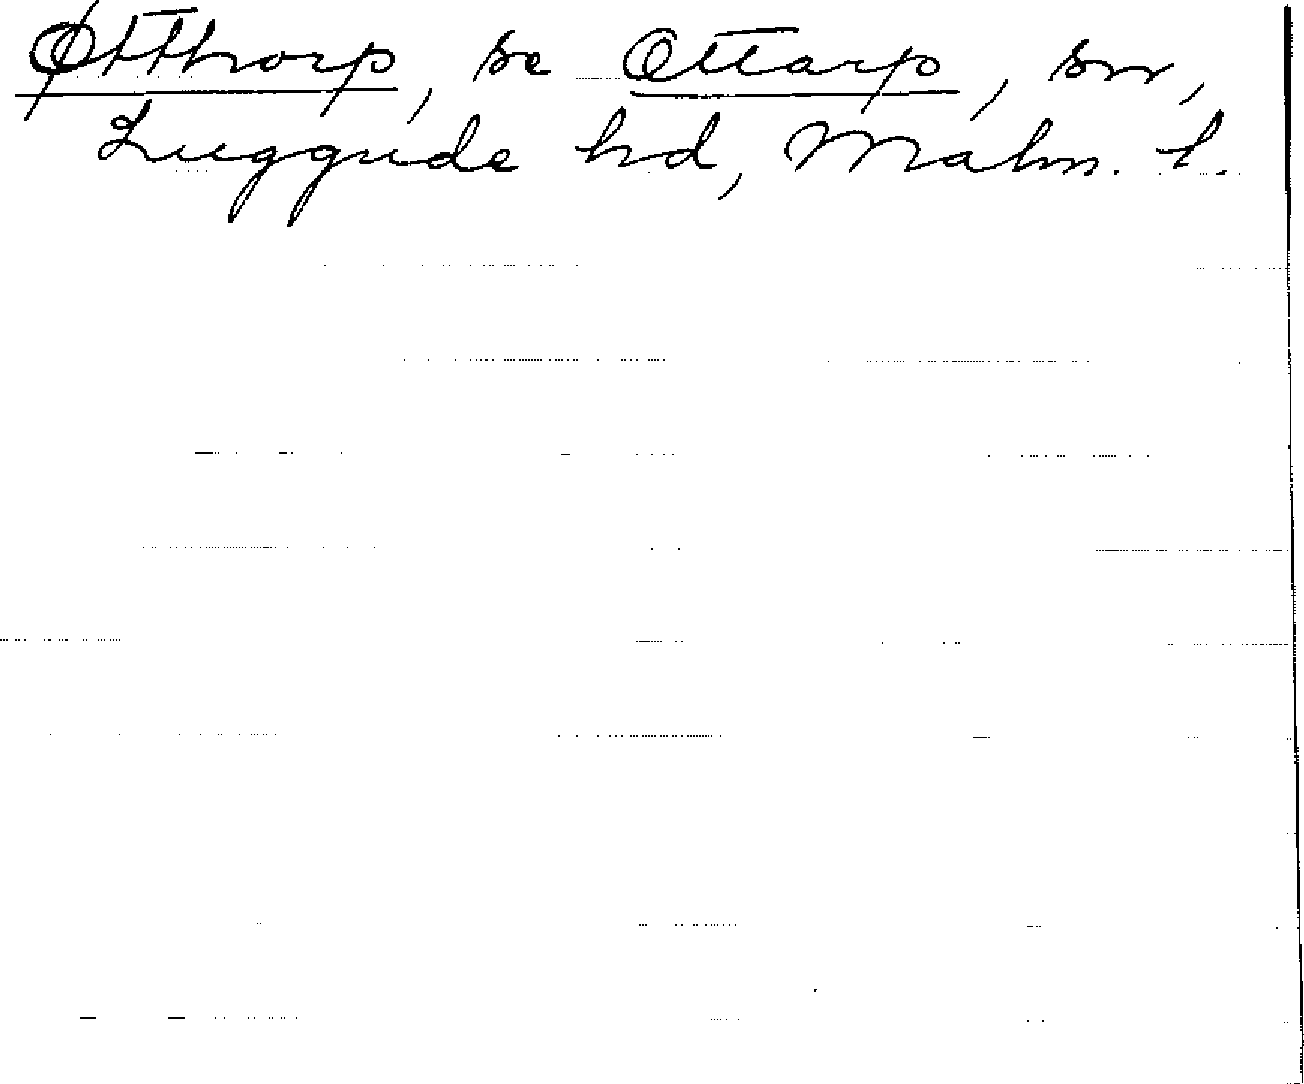 Øtthorp, se Ottarp, sn,
Luggude hd, Malm. l.